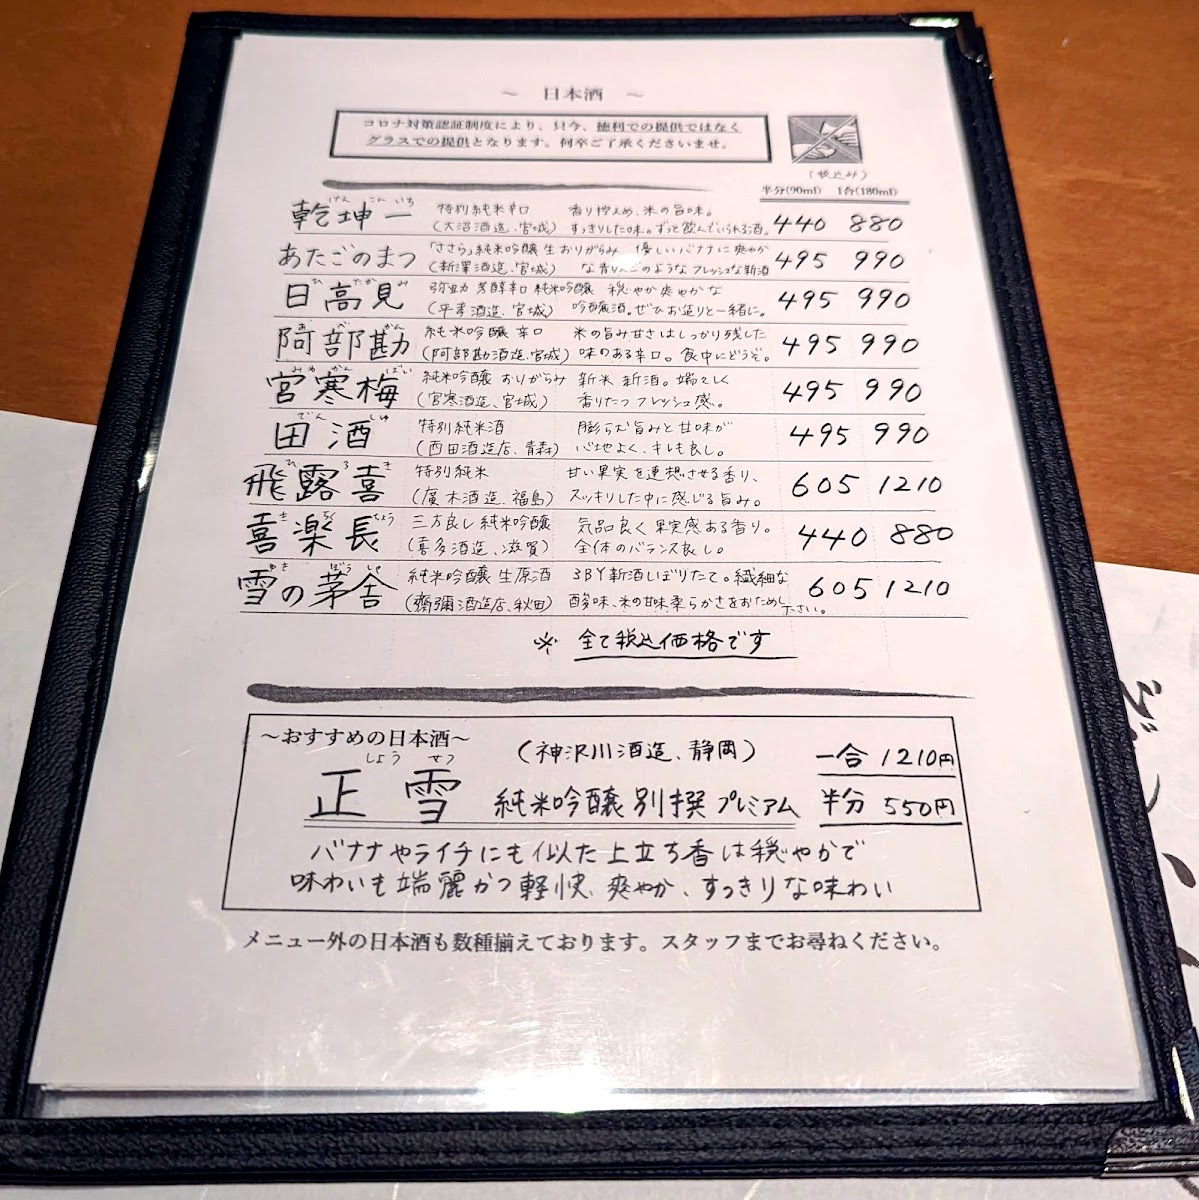 ～ 日本酒 ～
コロナ対策認証制度により、只今、徳利での提供ではなく
グラスでの提供となります。何卒ご了承くださいませ。
(税込み)
半分(90ml) 1合(180ml)
けん こん いち
乾坤一 特別純米辛口 香り控えめ、米の旨味。 440 880
(大沼酒造、宮城) すっきりした味。ずっと飲んでいられる酒。
あたごのまつ 「ささら」純米吟醸 生 おりがらみ 優しいバナナに爽やか 495 990
(新澤酒造、宮城) な青りんごのようなフレッシュな新酒
ひ たか み
日高見 弥助 芳醇辛口 純米吟醸 穏やか爽やかな 495 990
(平孝酒造、宮城) 吟醸酒。ぜひお造りと一緒に。
あ べ かん
阿部勘 純米吟醸 辛口 米の旨み甘さはしっかり残した 495 990
(阿部勘酒造、宮城) 味のある辛口。食中にどうぞ。
みや かん ばい
宮寒梅 純米吟醸 おりがらみ 新米 新酒。端々しく 495 990
(宮寒酒造、宮城) 香りたつ フレッシュ感。
でん しゅ
田酒 特別純米酒 膨らむ旨みと甘味が 495 990
(西田酒造店、青森) 心地よく、キレも良し。
ひ ろ き
飛露喜 特別純米 甘い果実を連想させる香り、 605 1210
(廣木酒造、福島) スッキリした中に感じる旨み。
き らく ちょう
喜楽長 三方良し 純米吟醸 気品良く果実感ある香り。 440 880
(喜多酒造、滋賀) 全体のバランス良し。
ゆき ぼう しゃ
雪の茅舎 純米吟醸 生原酒 3BY新酒しぼりたて。繊細な 605 1210
(齋彌酒造店、秋田) 酸味、米の甘味柔らかさをおためし
下さい。
※ 全て税込価格です
～おすすめの日本酒～ (神沢川酒造、静岡) 一合 1210円
しょう せつ
正雪 純米吟醸 別撰 プレミアム 半分 550円
バナナやライチにも似た上立ち香は穏やかで
味わいも端麗かつ軽快、爽やか、すっきりな味わい
メニュー外の日本酒も数種揃えております。スタッフまでお尋ねください。